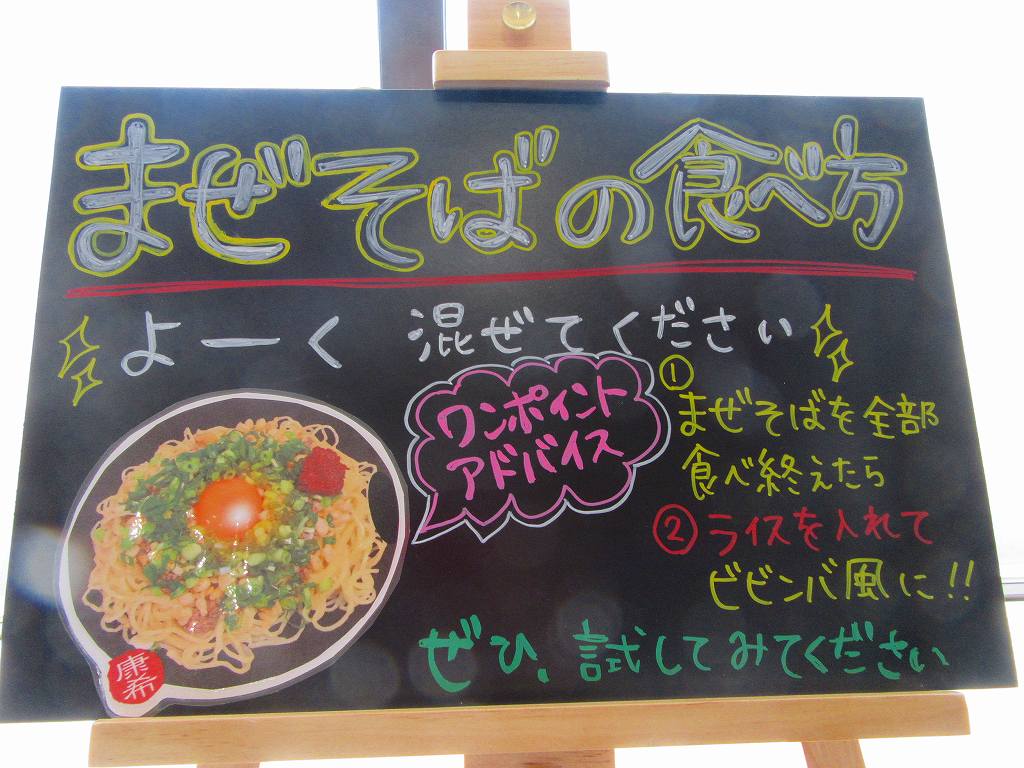 まぜそばの食べ方
よーく 混ぜてください
ワンポイント
アドバイス
①
まぜそばを全部
食べ終えたら
②ライスを入れて
ビビンバ風に!!
ぜひ、試してみてください
康希